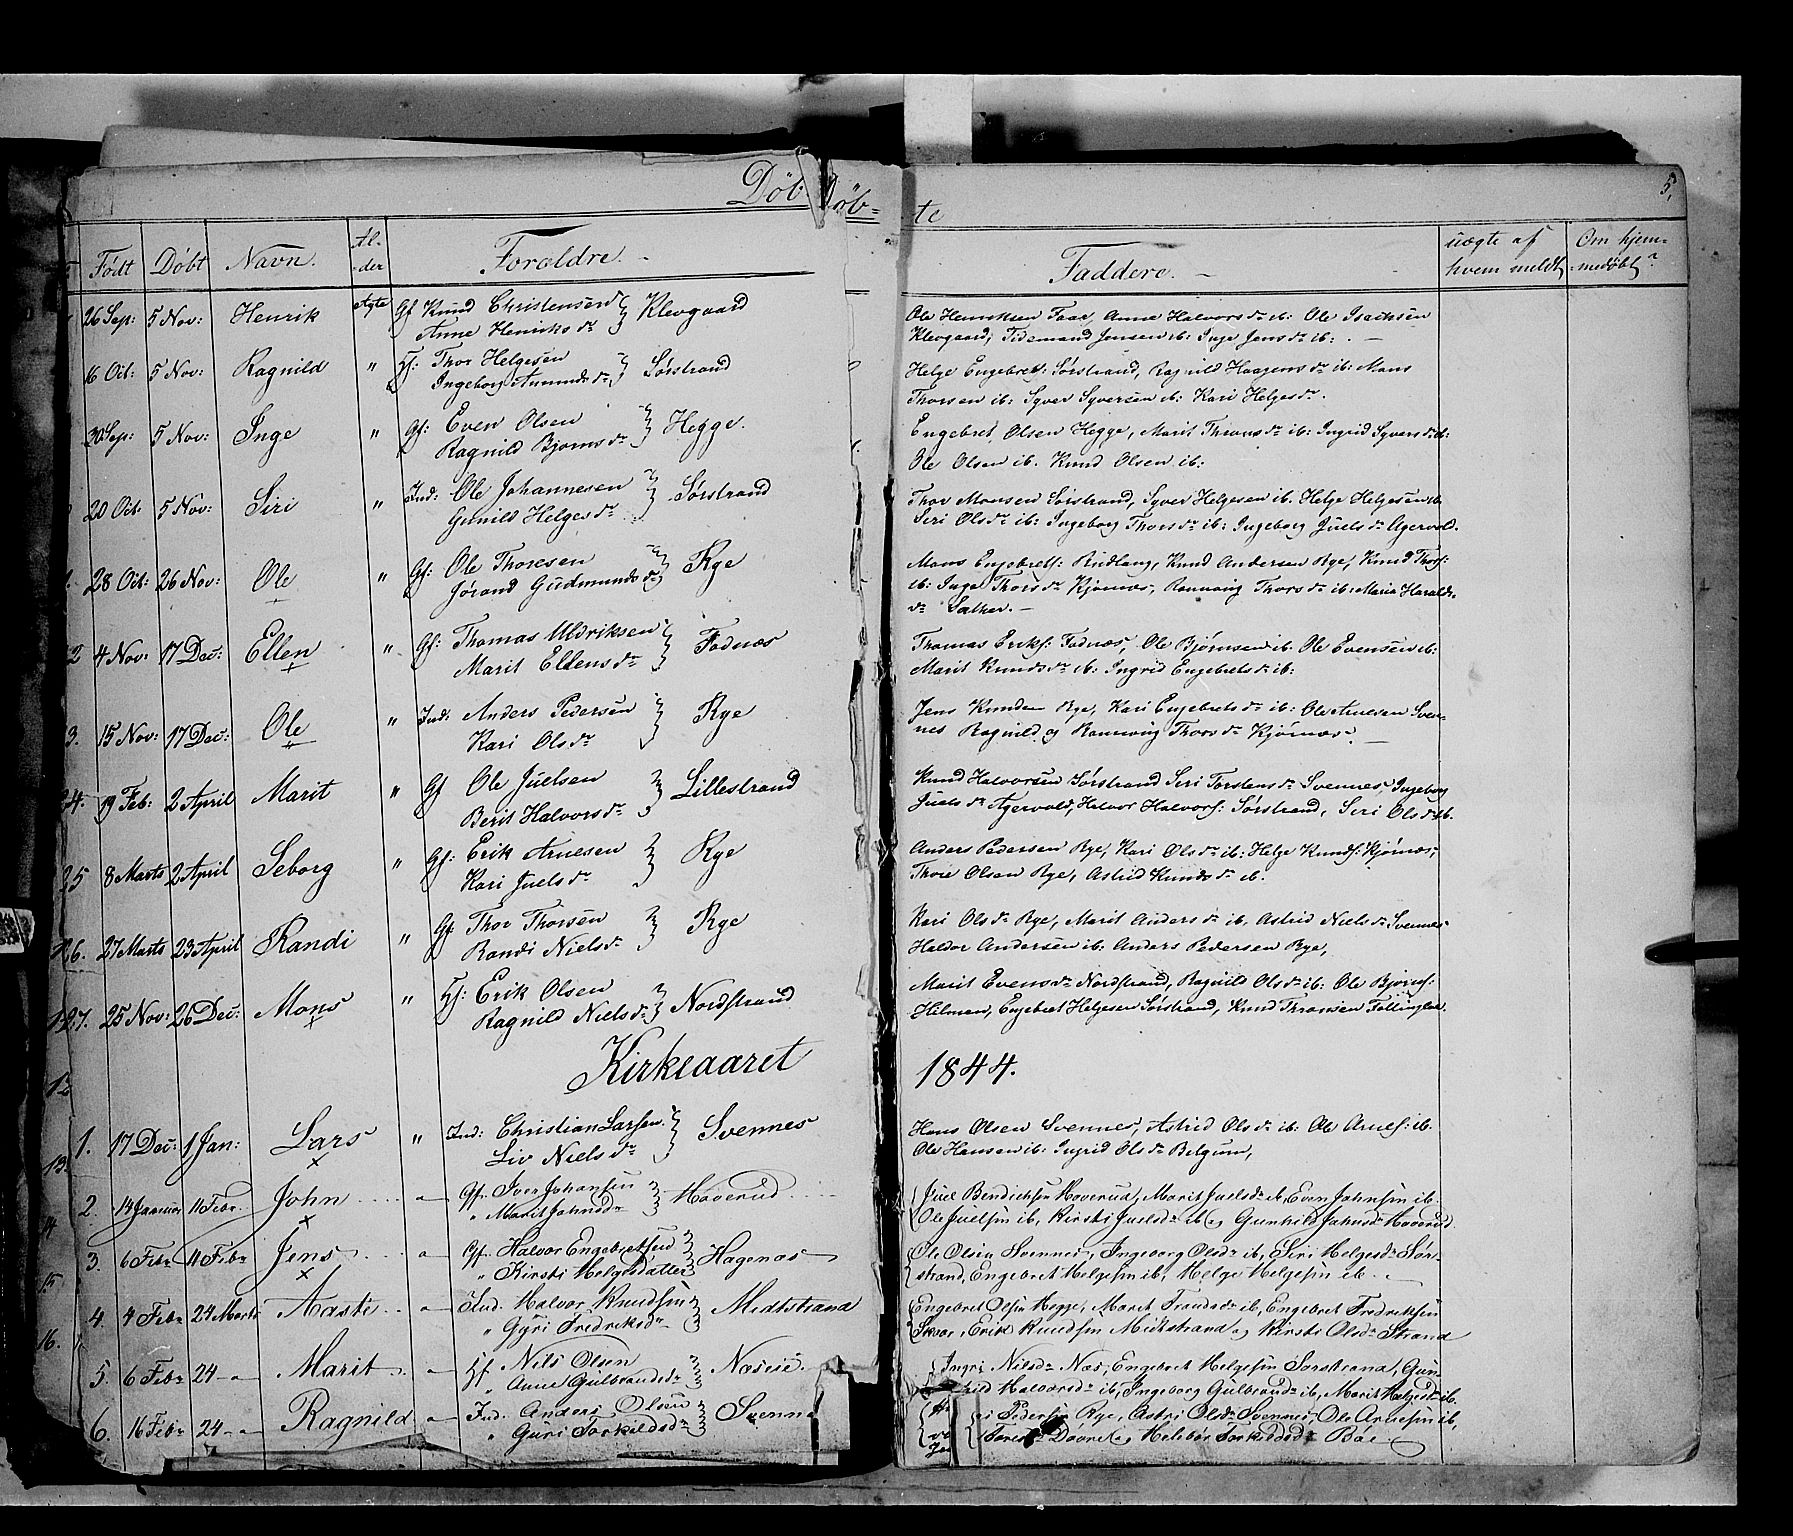 Døb- Døb- te 5,
Født Døbt Navn. Al-der Forældre. Faddere. uægte af hvem meldt Om hjem-medøbt?
26 Sep: 5 Nov: Henrik Ægte Gf Knud Christensen Klevgaard
Anne Henriks dr
Ole Henriksen Faar, Anne Halvors dr ib: Ole Isachsen
Klevgaard, Tidemand Jensen ib: Inge Jens dr ib:
16 Oct: 5 Nov: Ragnild " Hf: Thor Helgesen Sørstrand
Ingeborg Amunds dr
Helge Engebrets: Sørstrand, Ragnild Haagens dr ib: Mons
Thorsen ib: Syver Syversen ib: Kari Helges dr.
30 Sep: 5 Nov: Inge " Gf: Even Olsen Hegge.
Ragnild Bjørns dr
Engebret Olsen Hegge, Marit Throns dr ib: Ingrid Syvers dr ib:
Ole Olsen ib. Knud Olsen ib:
20 Oct 5 Nov: Siri " Ind: Ole Johannesen Sørstrand
Gunild Helges dr
Thor Monsen Sørstrand, Syver Helgesen ib. Helge Helgesen ib.
Seri Ols dr ib: Ingeborg Thors dr ib: Ingeborg Juels dr Agervold.
28 Oct: 26 Nov: Ole " Gf: Ole Thoresen Rye
Jørand Gudmunds dr
Mons Engebrets: Rudlang, Knud Andersen Rye, Knud Thors:
ib: Inge Thors dr Kjørnæs, Rannvig Thors dr ib: Maria Haralds
dr Sælher.
2 4 Nov: 17 Dec: Ellen " Gf: Thomas Uldriksen Fodnæs
Marit Ellens dr
Thomas Eriks: Fodnæs, Ole Bjørnsen ib. Ole Evensen ib:
Marit Knuds dr ib: Ingrid Engebrets dr ib:
3. 15 Nov: 17 Dec: Ole " Ind: Anders Pedersen Rye
Kari Ols dr
Jens Knudsen Rye, Kari Engebrets dr ib: Ole Arnesen Sven-
nes Ragnild og Rannvig Thors dr Kjørnæs.
24. 19 Feb: 2 April Marit " Gf Ole Juelsen Lillestrand
Berit Halvors dr
Knud Halvorsen Sørstrand Seri Torstens dr Svennes, Ingeborg
Juels dr Agervold, Halvor Halvors: Sørstrand, Seri Ols dr ib.
25 8 Marts 2 April Seborg " Gf: Erik Arnesen Rye
Kari Juels dr
Anders Pedersen Rye, Kari Ols dr ib: Helge Knuds: Kjørnæs,
Thore Olsen Rye, Astrid Knuds dr ib.
26. 27 Marts 23 April Randi " Gf Thor Thorsen Rye
Randi Niels dr
Kari Ols dr Rye, Marit Anders dr ib. Astrid Niels dr Svennes
Haldor Andersen ib: Anders Pedersen Rye,
27. 25 Nov: 26 Dec: Mons " Hf: Erik Olsen Nordstrand
Ragnild Niels dr
Marit Evens dr Nordstrand, Ragnild Ols dr ib: Ole Bjørns:
Hilmen, Engebret Helgesen Sørstrand, Knud Thronsen Føllinglæ.
Kirkeaaret 1844.
1. 17 Dec: 1 Jan: Lars " Ind: Christian Larsen Svennes
Liv Niels dr
Hans Olsen Svennes, Astrid Ols dr ib: Ole Arnes: ib.
Ole Hansen ib: Ingrid Ols dr Belgum,
2. 14 Januar 11 Febr. John Gf. Iver Johansen Hoverud
" Marit Johnsdr
Juel Bendichsen Hoverud, Marit Juelsdr ib, Even Johnsen ib.
Ole Juelsen ib, Kirsti Juelsdr ib og Gunhild Johnsdr Hoverud.
3. 6 Febr 11 Febr Jens Gf. Halvor Engebretsen Hagenæs
" Kirsti Helgesdatter
Ole Olsen Svennes, Ingeborg Olsdr ib, Siri Helgesdr Sør-
strand, Engebret Helgesen ib, Helge Helgesen ib.
4. 4 Febr 24 Marts Aaste Ind. Halvor Knudsen Midtstrand
" Gyri Fredriksdr
Engebret Olsen Hegge, Marit Trondsdr ib, Engebret Fredriksen
Skoer, Erik Knudsen Midtstrand og Kirsti Olsdr Strand
5. 6 Febr 24 Marit Hf Nils Olsen Næseie.
" Anne Gulbrandsdr
Ingri Nilsdr Næs, Engebret Helgesen Sørstrand, Gun-
hild Halvorsdr ib, Ingeborg Gulbrandsdr ib, Marit Helgesdr ib.
6. 16 Febr 24 Ragnild Ind. Anders Olsen Svenn
" Guri Torkildsdr
Pedersen Rye, Astri Olsdr Svennes, Ole Arnesen ib,
Toresdr Døvre og Helebør Torkildsdr Bøe
12
13
14
15
16.